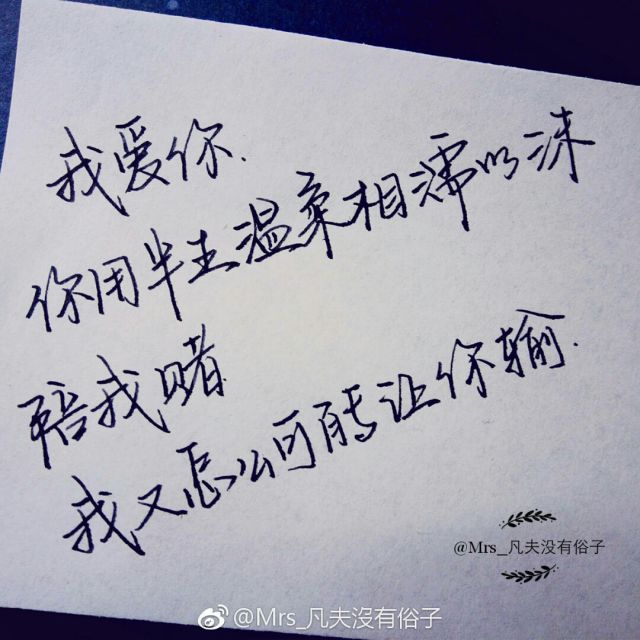 我爱你.
你用半生温柔相濡以沫
陪我赌
我又怎么可能让你输.
@Mrs_凡夫没有俗子
@Mrs_凡夫沒有俗子